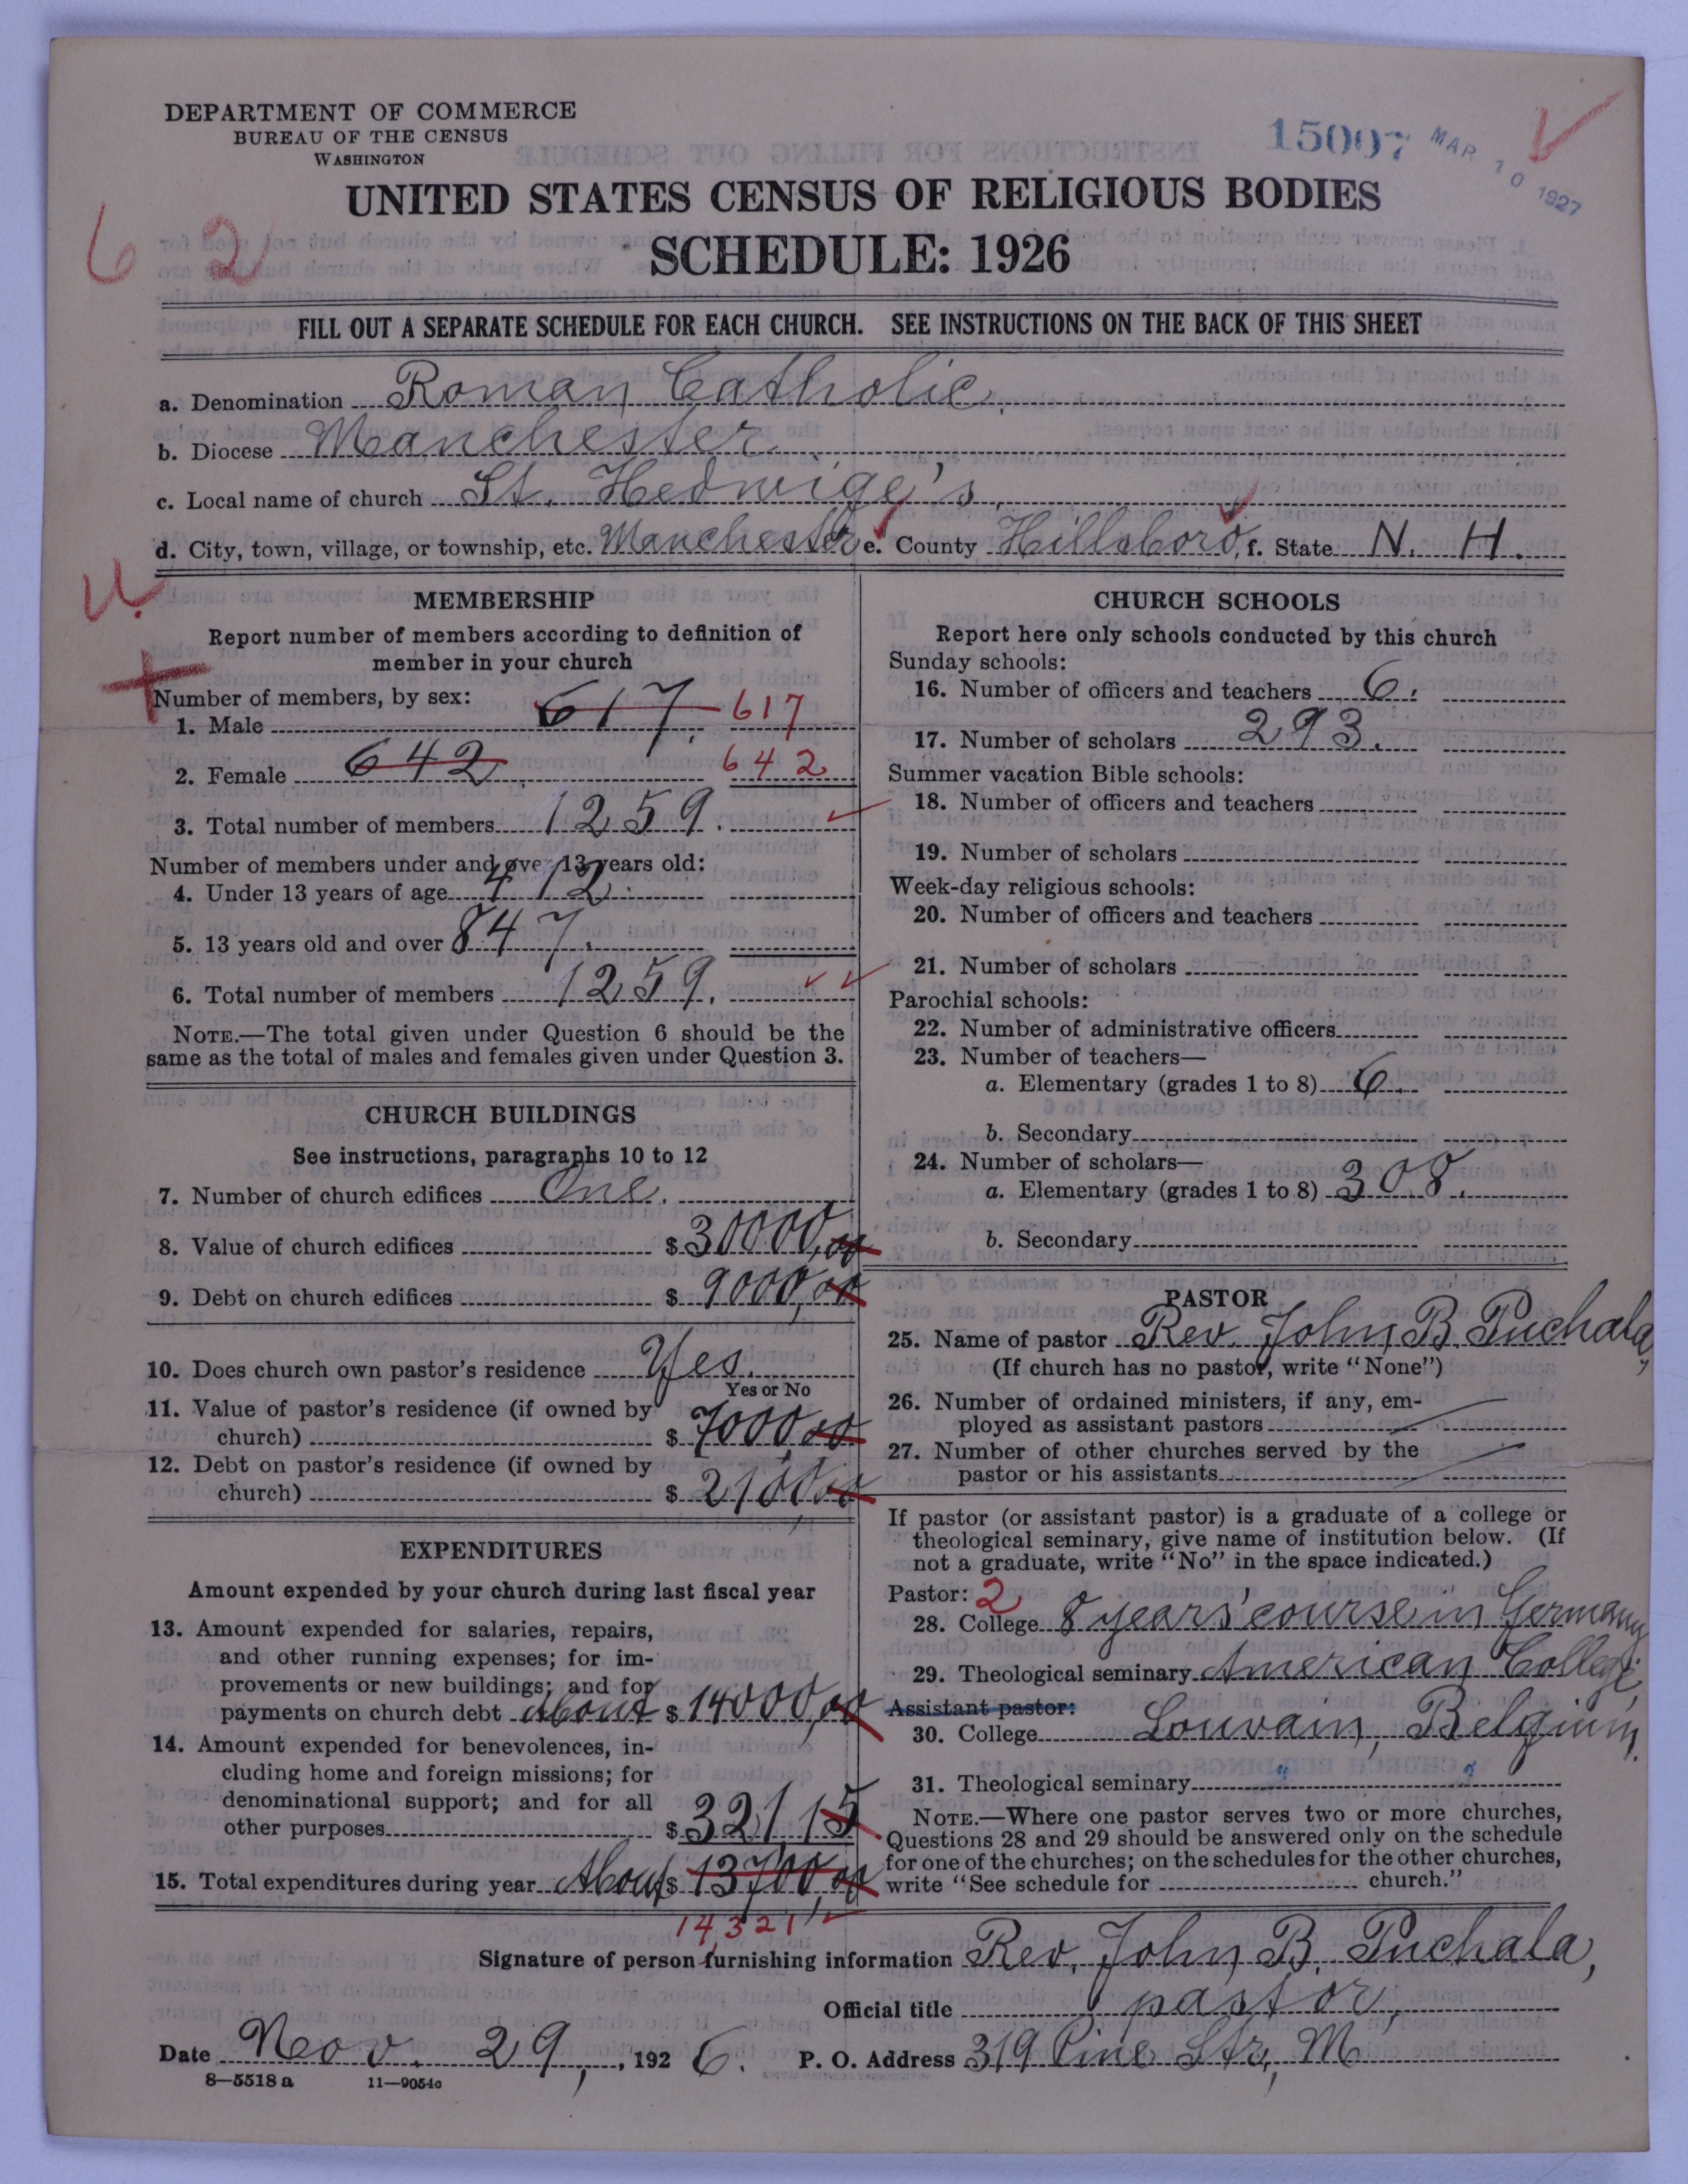 DEPARTMENT OF COMMERCE
BUREAU OF THE CENSUS
WASHINGTON
15097 MAR 10 1927
UNITED STATES CENSUS OF RELIGIOUS BODIES
6 2
SCHEDULE: 1926
FILL OUT A SEPARATE SCHEDULE FOR EACH CHURCH. SEE INSTRUCTIONS ON THE BACK OF THIS SHEET
a. Denomination Roman Catholic.
b. Diocese Manchester
c. Local name of church St. Hedwige's
d. City, town, village, or township, etc. Manchester e. County Hillsboro, f. State N. H.
U.
MEMBERSHIP
Report number of members according to definition of
member in your church
Number of members, by sex:
1. Male 617. 617
2. Female 642. 642
3. Total number of members 1259.
Number of members under and over 13 years old:
4. Under 13 years of age 412.
5. 13 years old and over 847.
6. Total number of members 1259.
NOTE.—The total given under Question 6 should be the
same as the total of males and females given under Question 3.
CHURCH BUILDINGS
See instructions, paragraphs 10 to 12
7. Number of church edifices One.
8. Value of church edifices $ 30000,00
9. Debt on church edifices $ 9000,00
10. Does church own pastor's residence Yes.
Yes or No
11. Value of pastor's residence (if owned by
church) $ 7000,00
12. Debt on pastor's residence (if owned by
church) $ 2100,00
EXPENDITURES
Amount expended by your church during last fiscal year
13. Amount expended for salaries, repairs,
and other running expenses; for im-
provements or new buildings; and for
payments on church debt about $ 14000,00
14. Amount expended for benevolences, in-
cluding home and foreign missions; for
denominational support; and for all
other purposes $ 321,15
15. Total expenditures during year About $ 13700,00
14,321
CHURCH SCHOOLS
Report here only schools conducted by this church
Sunday schools:
16. Number of officers and teachers 6.
17. Number of scholars 293.
Summer vacation Bible schools:
18. Number of officers and teachers
19. Number of scholars
Week-day religious schools:
20. Number of officers and teachers
21. Number of scholars
Parochial schools:
22. Number of administrative officers
23. Number of teachers—
a. Elementary (grades 1 to 8) 6.
b. Secondary
24. Number of scholars—
a. Elementary (grades 1 to 8) 308.
b. Secondary
PASTOR
25. Name of pastor Rev. John B. Puchala,
(If church has no pastor, write "None")
26. Number of ordained ministers, if any, em-
ployed as assistant pastors
27. Number of other churches served by the
pastor or his assistants
If pastor (or assistant pastor) is a graduate of a college or
theological seminary, give name of institution below. (If
not a graduate, write "No" in the space indicated.)
Pastor: 2
28. College 8 years' course in Germany
29. Theological seminary American College,
Assistant pastor:
30. College Louvain, Belgium.
31. Theological seminary
NOTE.—Where one pastor serves two or more churches,
Questions 28 and 29 should be answered only on the schedule
for one of the churches; on the schedules for the other churches,
write "See schedule for church."
Signature of person furnishing information Rev. John B. Puchala,
Official title pastor,
Date Nov. 29, 1926. P. O. Address 319 Pine Str, M
8—5518 a 11—9054c